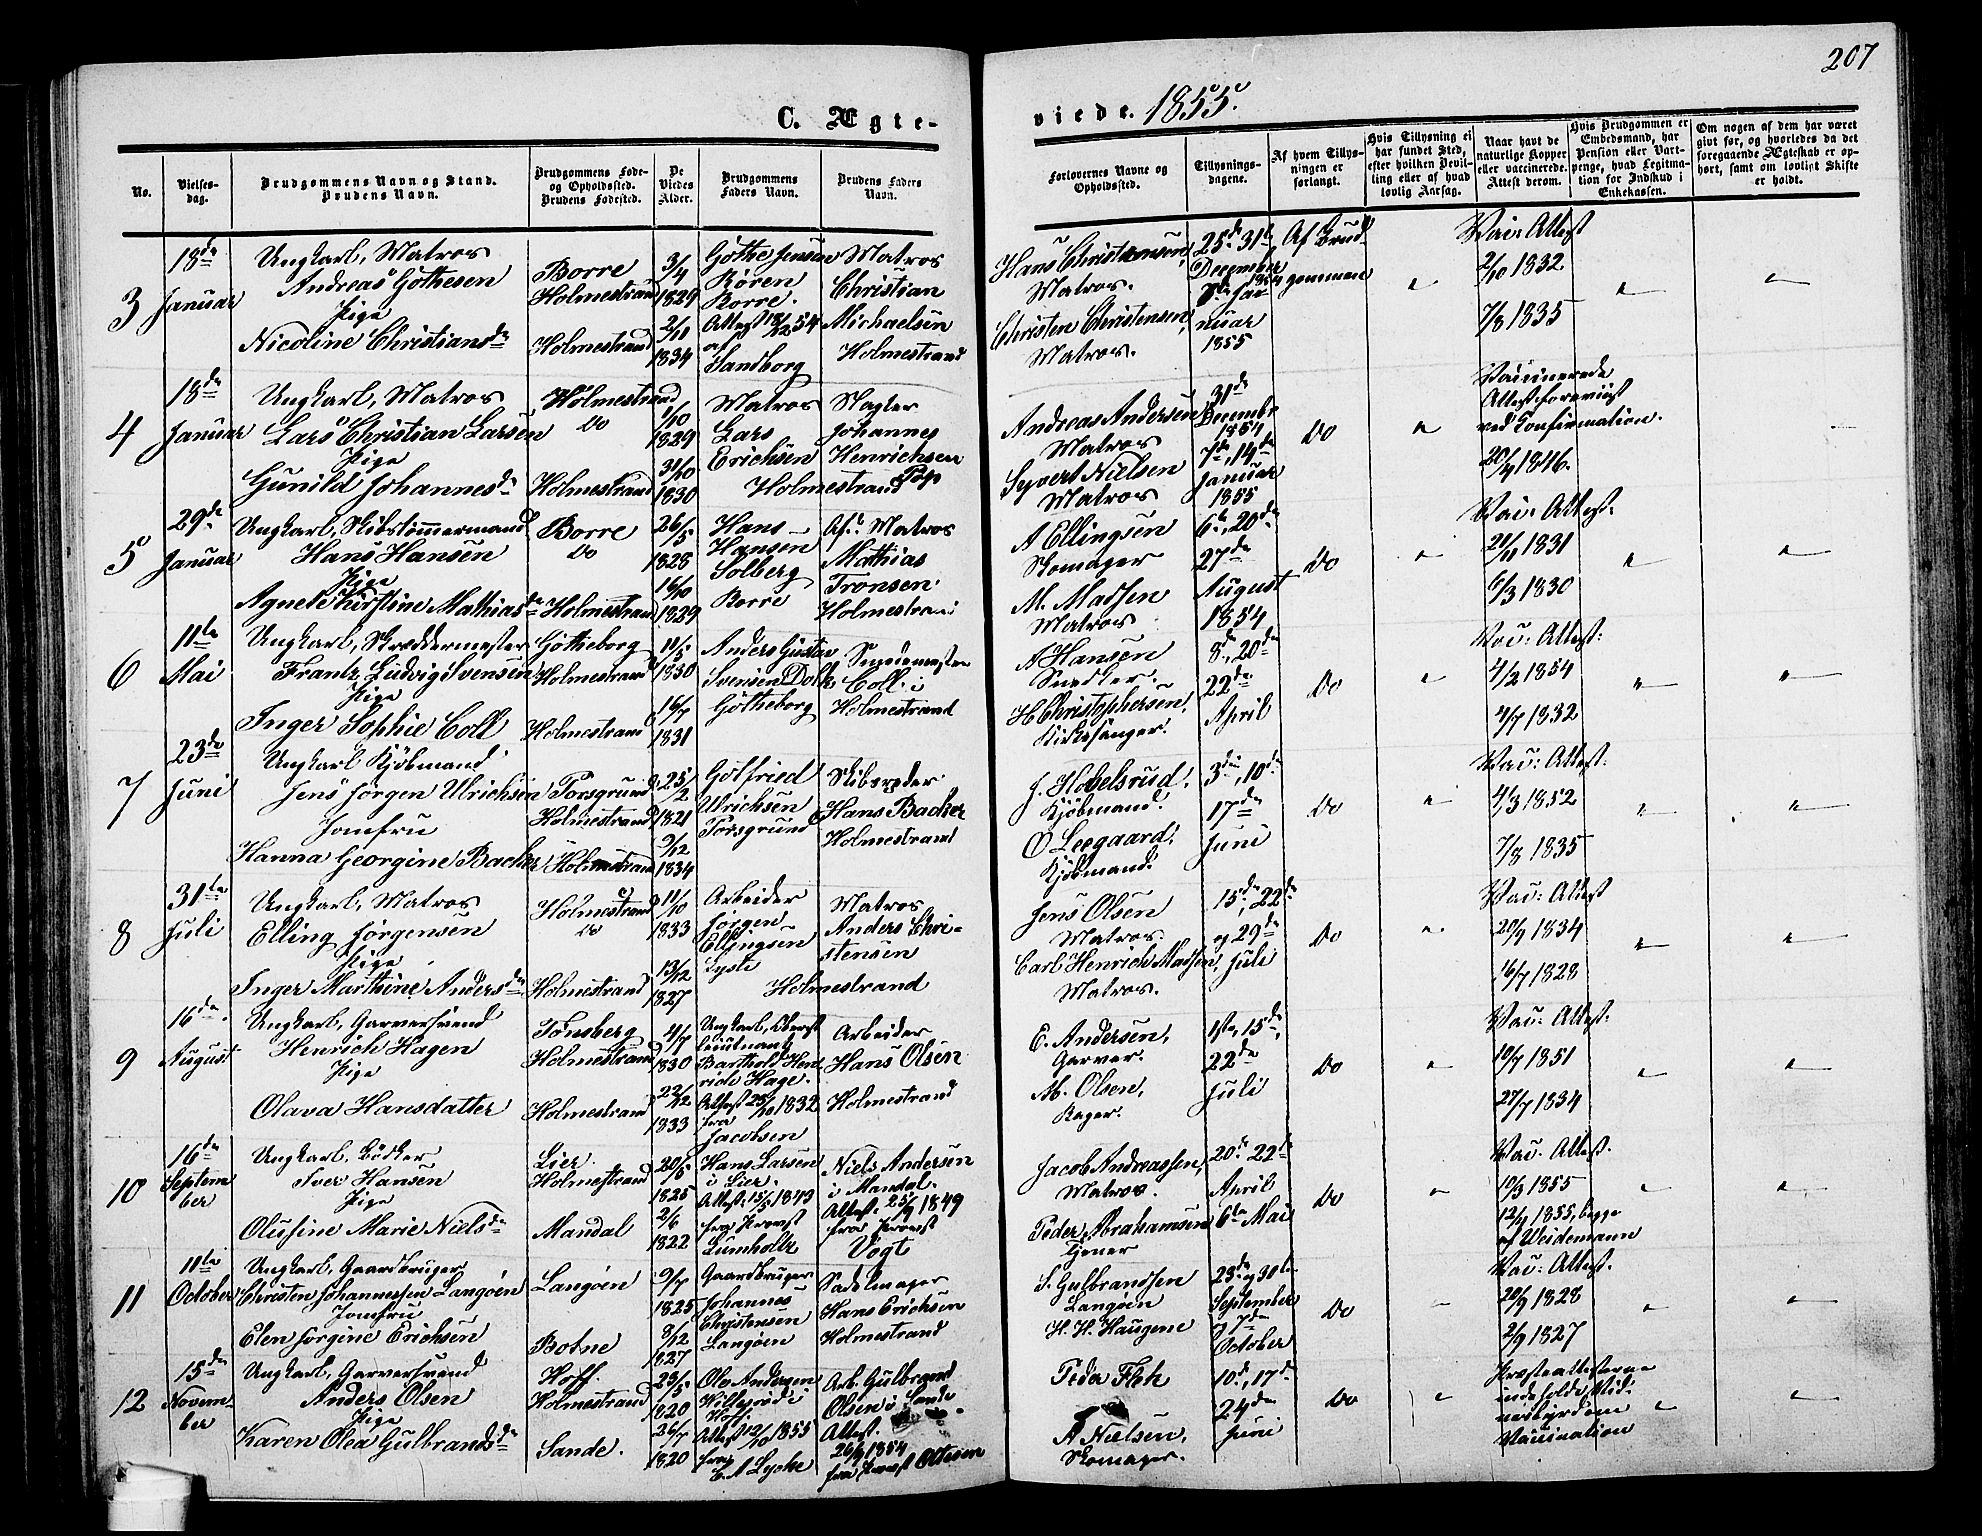 207
C. Ægteviede. 1855.
No.
Vielsesdag.
Brudgommens Navn og Stand.
Brudens Navn.
Brudgommens Fødeog Opholdssted.
Brudens Fødested.
De Viedes Alder.
Brudgommens Faders Navn.
Brudens Faders Navn.
Forlovernes Navne og Opholdssted.
Tillysningsdagene.
Af hvem Tillysningen er forlangt.
Hvis Tillysning ei har fundet Sted, efter hvilken Bevilling eller af hvad lovlig Aarsag.
Naar havt de naturlige Kopper eller vaccinerede. Attest derom.
Hvis Brudgommen er Embedsmand, har Pension eller Vartpenge, hvad Legitmation for Indskud i Enkekassen.
Om nogen af dem har været givt før, og hvorledes da det foregaaende Ægteskab er ophørt, samt om lovligt Skifte er holdt.
3
18de Januar
Ungkarl, Matros
Andreas Gøthesen
Pige
Nicoline Christiansdr
Borre
Holmestrand
Holmestrand
3/4 1829
2/11 1834
Gøthe Jensen
Røren
Borre.
Attest 18/12 54
af
Sandborg
Matros
Christian
Michaelsen
Holmestrand
Hans Christensen,
Matros.
Christen Christensen,
Matros.
25de 31te
December
1854
7de Januar
1855
Af Brudgommen
"
Vac: Attest
2/10 1832
7/8 1835
"
"
4
18de Januar
Ungkarl, Matros
Lars Christian Larsen
Pige
Gunild Johannesdr
Holmestrand
Do
Holmestrand
1/10 1829
31/10 1830
Matros
Lars
Erichsen
Slagter
Johannes
Henrichsen
Holmestrand
Andreas Andersen
Matros
Syvert Nielsen
Matros
31de
Decembr
1854
7de, 14de
Januar
1855
Do
"
Vaccinerede
Attest foreviist
ved Confirmation.
20/4 1846.
5
29de Januar
Ungkarl, Skibstømmermand
Hans Hansen
Pige
Agnete Kirstine Mathiasdr
Borre
Do
Holmestrand
26/5 1828
16/10 1829
Hans
Hansen
Solberg
Borre
Afd. Matros
Mathias
Tronsen
Holmestrand
A Ellingsen
Skomager
M. Madsen
Matros
6te, 20de
27de
August
1854
Do
"
Vac: Attest:
21/11 1831
6/3 1830
"
"
6
11te Mai
Ungkarl, Skreddermester
Frantz Ludvig Svensen
Pige
Inger Sophie Coll
Gøtheborg
Holmestrand
Holmestrand
11/5 1830
16/7 1831
Anders Gustav
Svensen Dolk
Gøtheborg
Smedemester
Coll i
Holmestrand
A Hansen
Snedker.
H Christophersen,
Kirkesanger.
8de, 20de
22de
April
Do
"
Vac: Attest:
4/2 1854
4/7 1832
"
"
7
23de Juni
Ungkarl Kjøbmand
Jens Jørgen Ulrichsen
Jomfru
Hanna Georgine Backer
Porsgrund
Holmestrand
Holmestrand
25/2 1821
9/12 1834
Gotfried
Ulrichsen
Porsgrund
Skibsreder
Hans Backer
Holmestrand
J. Hobelsrud,
Kjøbmand.
O Leegaard,
Kjøbmand.
3die, 10de
17de
Juni
Do
"
Vac: Attest:
4/3 1852
7/8 1835
"
"
8
31te Juli
Ungkarl, Matros
Elling Jørgensen
Pige
Inger Marthine Andersdr
Holmestrand
Do
Holmestrand
11/10 1833
13/12 1827
Arbeider
Jørgen
Ellingsen
Matros
Anders Christensen
Holmestrand
Jens Olsen
Matros.
Carl Henrich Madsen,
Matros.
15de, 22de
og 29de
Juli
Do
"
Vac: Attest
20/9 1834
16/7 1828
"
"
9
16de August
Ungkarl, Garversvend
Henrich Hagen
Pige
Olava Hansdatter
Tønsberg
Holmestrand
Holmestrand
4/7 1830
22/12 1833
Ungkarl, Oberst
lieutnant
Barthold Henrich Hage.
Attest 25/10 1832
fra
Jacobsen
Arbeider
Hans Olsen
Holmestrand
E. Andersen,
Garver.
M. Olsen,
Bager.
1ste, 15de,
22de
Juli
Do
"
Vac: Attest:
10/7 1851
27/7 1834
"
"
10
16de September
Ungkarl, Bødker
Iver Hansen
Pige
Olufine Marie Nielsdr
Lier.
Holmestrand
Mandal
20/5 1825
2/6 1822
Hans Larsen
i Lier.
Attest. 15/5 1843
fra Provst
Lumholtz
Niels Andersen
i Mandal.
Attest. 25/9 1849
fra Provst
Vogt
Jacob Andreassen,
Matros.
Peder Abrahamsen
Tjener
20de 22de
April
6te Mai
Do
"
Vac. Attest.
19/3 1855
12/9 1855, begge
af Weidemann
"
"
11
11te October
Ungkarl, Gaardbruger
Christen Johannessen Langøen
Jomfru
Elen Jørgine Erichsen
Langøen
Botne
9/7 1825
8/12 1827
Gaardbruger
Johannes
Christensen
Langøen
Sadelmager
Hans Erichsen
Holmestrand
S. Gulbrandsen
Langøen
H. H. Haugene
23de og 30te
September
og 7de
October
Do
"
Vac: Attest.
20/9 1828
2/9 1827
"
"
12
15de November
Ungkarl, Garversvend
Anders Olsen
Pige
Karen Olea Gulbrandsdr
Hoff.
Holmestrand
Sande.
23/5 1820
26/7 1820
Ole Andersen
Hillesrød i
Hoff.
Attest 12/10 1855
fra
C. A Lycke
Arb. Gulbrand
Olsen i Sande
Attest.
26/9 1854
fra Provst Ottesen
Peder
A Nielsen,
Skomager.
10de, 17de
24de
Juni
Do
"
Præsteattesterne
indeholde Vidnesbyrd om
Vaccination
"
"